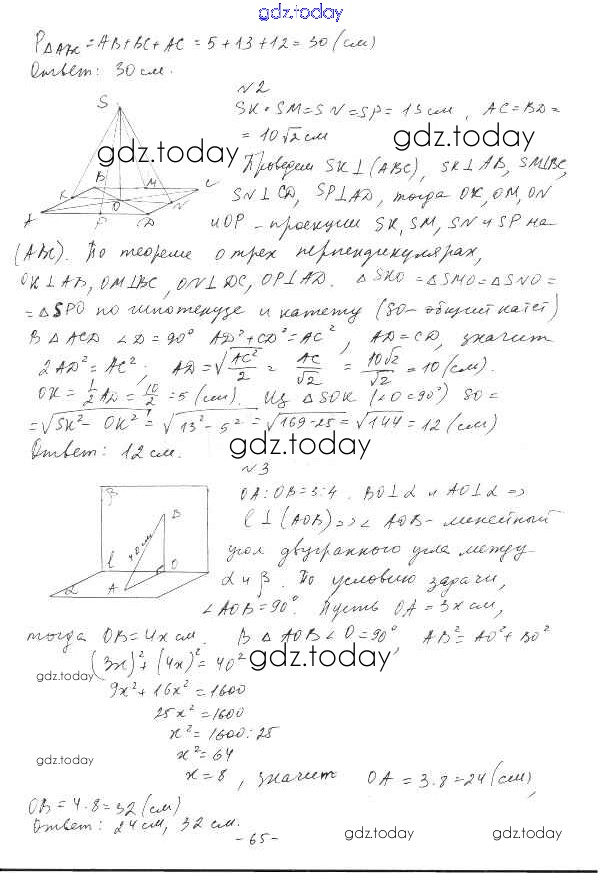 gdz.today
P△ABC = AB+BC+AC = 5+13+12 = 30 (см)
Ответ: 30 см.
№2
SK = SM = SN = SP = 13 см, AC = BD =
= 10√2 см
gdz.today
gdz.today
Проведем SK⊥(ABC), SK⊥AB, SM⊥BC,
SN⊥CD, SP⊥AD, тогда OK, OM, ON
и OP - проекции SK, SM, SN и SP на
S
B
M
C
K
O
N
A
P
D
(ABC). По теореме о трех перпендикулярах,
OK⊥AB, OM⊥BC, ON⊥DC, OP⊥AD. △SKO = △SMO = △SNO =
= △SPO по гипотенузе и катету (SO - общий катет)
В △ACD ∠D = 90° AD² + CD² = AC², AD = CD, значит
2AD² = AC²; AD = √(AC²/2) = AC/√2 = 10√2/√2 = 10 (см).
OK = 1/2 AD = 10/2 = 5 (см). Из △SOK (∠O = 90°) SO =
= √(SK² - OK²) = √(13² - 5²) = √(169-25) = √144 = 12 (см)
gdz.today
Ответ: 12 см.
№3
β
B
40 см
l
O
α
A
OA:OB = 3:4. BO⊥α и AO⊥α =>
l⊥(AOB) => ∠AOB - линейный
угол двугранного угла между
α и β. По условию задачи,
∠AOB = 90°. Пусть OA = 3x см,
тогда OB = 4x см. В △AOB ∠O = 90°, AB² = AO² + BO²
(3x)² + (4x)² = 40²
gdz.today
gdz.today
9x² + 16x² = 1600
25x² = 1600
x² = 1600:25
x² = 64
gdz.today
x = 8, значит OA = 3·8 = 24 (см),
OB = 4·8 = 32 (см)
Ответ: 24 см, 32 см.
- 65 -
gdz.today
gdz.today